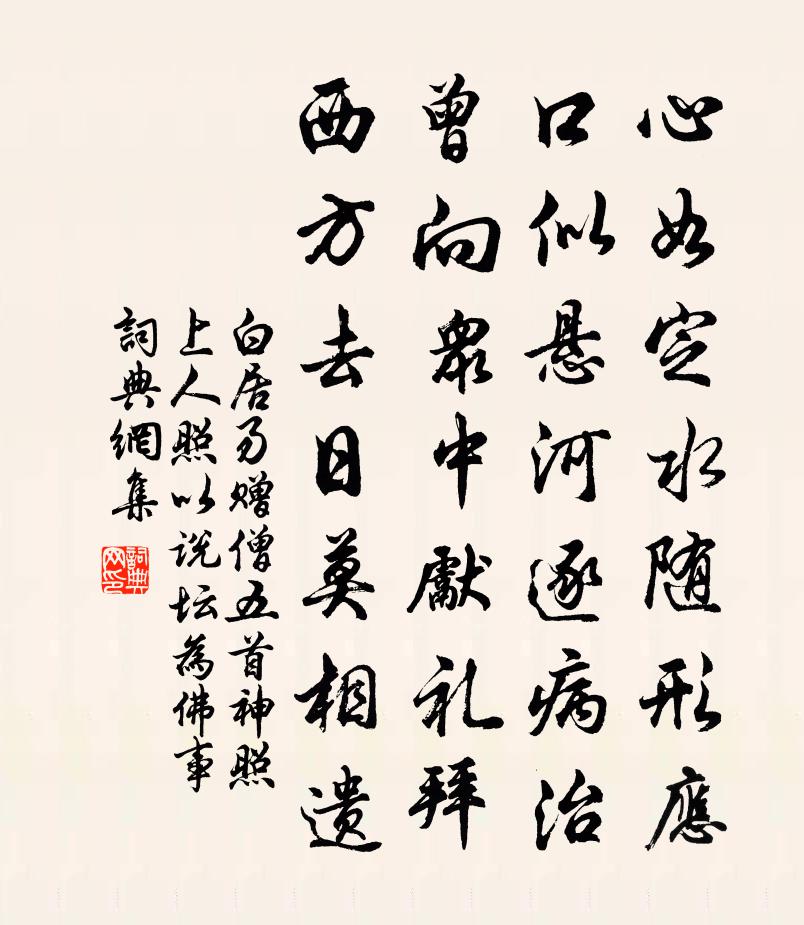 心如定水随形應
口似悬河逐病治
曾向眾中獻礼拜
西方去日莫相遗
白居易赠僧五首神照
上人照以说坛為佛事
詞典網集
詞典网印